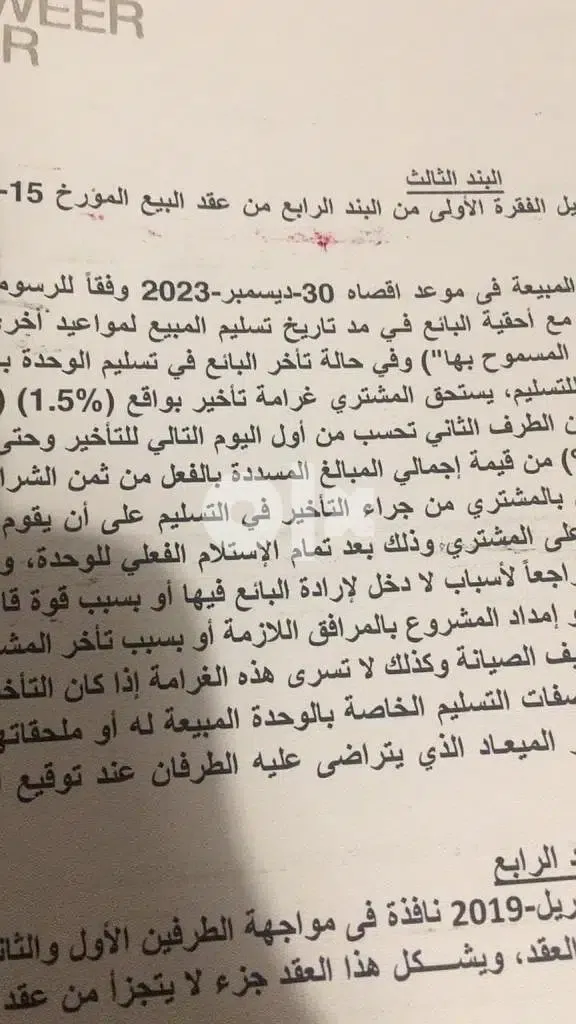 WEER
R
البند الثالث
يل الفقرة الأولى من البند الرابع من عقد البيع المؤرخ 15-
المبيعة فى موعد اقصاه 30-ديسمبر-2023 وفقاً للرسوم
مع أحقية البائع في مد تاريخ تسليم المبيع لمواعيد أخرى
المسموح بها") وفي حالة تأخر البائع في تسليم الوحدة ب
للتسليم، يستحق المشتري غرامة تأخير بواقع (1.5%) (
ن الطرف الثاني تحسب من أول اليوم التالي للتأخير وحتى
%) من قيمة إجمالي المبالغ المسددة بالفعل من ثمن الشرا
بالمشتري من جراء التأخير في التسليم على أن يقوم
على المشتري وذلك بعد تمام الإستلام الفعلي للوحدة، و
راجعاً لأسباب لا دخل لإرادة البائع فيها أو بسبب قوة قا
و إمداد المشروع بالمرافق اللازمة أو بسبب تأخر المش
يف الصيانة وكذلك لا تسرى هذه الغرامة إذا كان التأخ
صفات التسليم الخاصة بالوحدة المبيعة له أو ملحقاته
ر الميعاد الذي يتراضى عليه الطرفان عند توقيع
د الرابع
ريل-2019 نافذة فى مواجهة الطرفين الأول والثان
العقد، ويشكل هذا العقد جزء لا يتجزأ من عقد
OLX